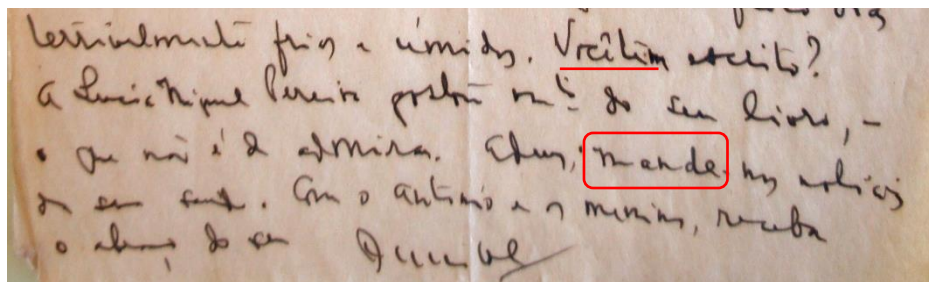 terrivelmente frios e úmidos. Você tem escrito?
A Lucia Miguel Pereira gostou mto do seu livro, —
o que não é de admirar. Adeus; mande-nos notícias
de sua saude. Com o Antonio e os meninos, receba
o abraço do seu